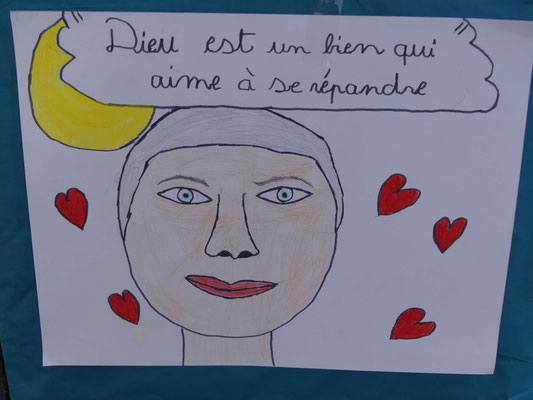 Dieu est un bien qui
aime à se répandre